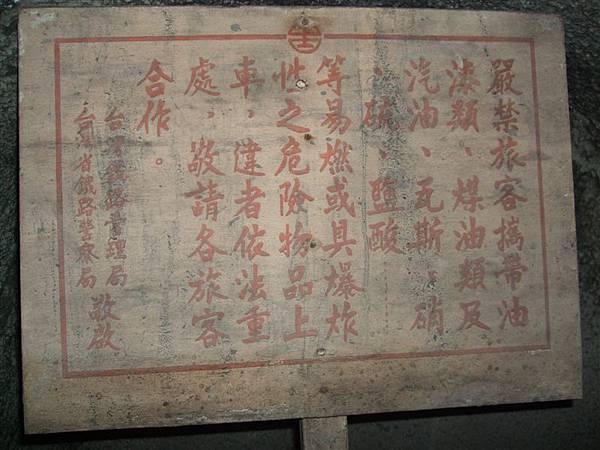 嚴禁旅客攜帶油
漆類、煤油類及
汽油、瓦斯、硝
、硫、鹽酸
等易燃或具爆炸
性之危險物品上
車，違者依法重
處，敬請各旅客
合作。
台灣鐵路管理局
台灣省鐵路警察局
敬啟